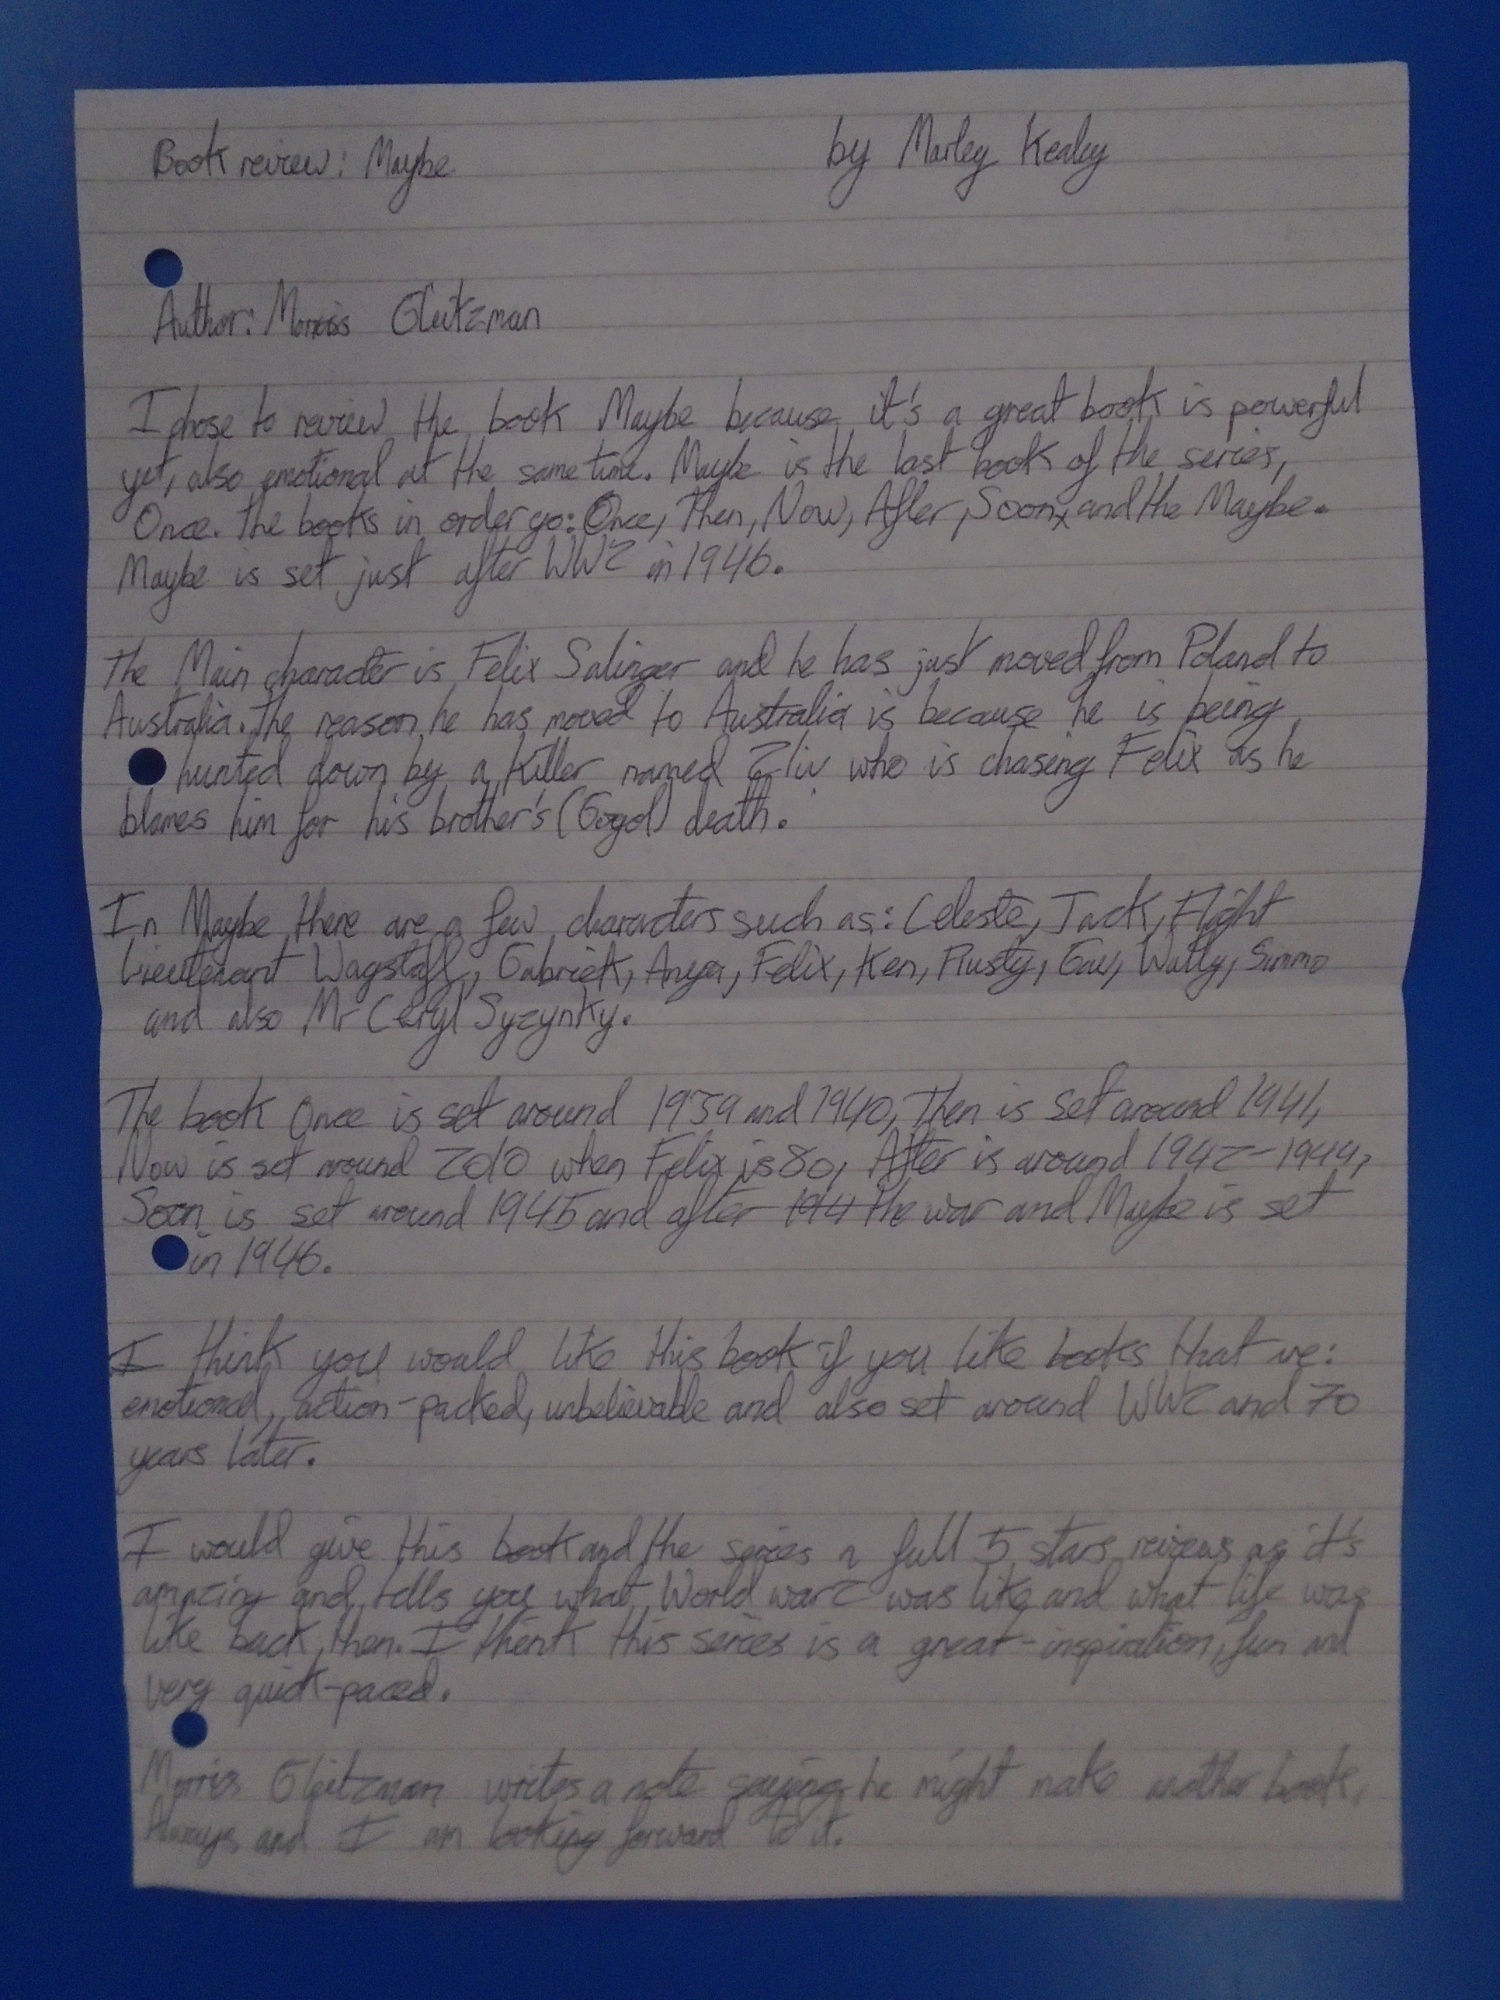 Book review: Maybe by Marley Kealey
Author: Morris Gleitzman
I chose to review the book Maybe because it's a great book is powerful
yet, also emotional at the same time. Maybe is the last book of the series,
Once. The books in order go: Once, Then, Now, After, Soon, and the Maybe.
Maybe is set just after WW2 in 1946.
The Main character is Felix Salinger and he has just moved from Poland to
Australia. The reason he has moved to Australia is because he is being
hunted down by a killer named Zliv who is chasing Felix as he
blames him for his brother's (Gogol) death.
In Maybe there are a few characters such as: Celeste, Jack, Flight
Lieutenant Wagstaff, Gabriek, Anya, Felix, Ken, Rusty, Gav, Wally, Simmo
and also Mr Ceryl Syzynky.
The book Once is set around 1939 and 1940, Then is set around 1941,
Now is set around 2010 when Felix is 80, After is around 1942-1944,
Soon is set around 1945 and after 194 the war and Maybe is set
in 1946.
I think you would like this book if you like books that are:
emotional, action-packed, unbelievable and also set around WW2 and 70
years later.
I would give this book and the series a full 5 stars reviews as it's
amazing and tells you what World war 2 was like and what life was
like back then. I think this series is a great-inspiration, fun and
very quick-paced.
Morris Gleitzman writes a note saying he might make another book,
Always and I am looking forward to it.